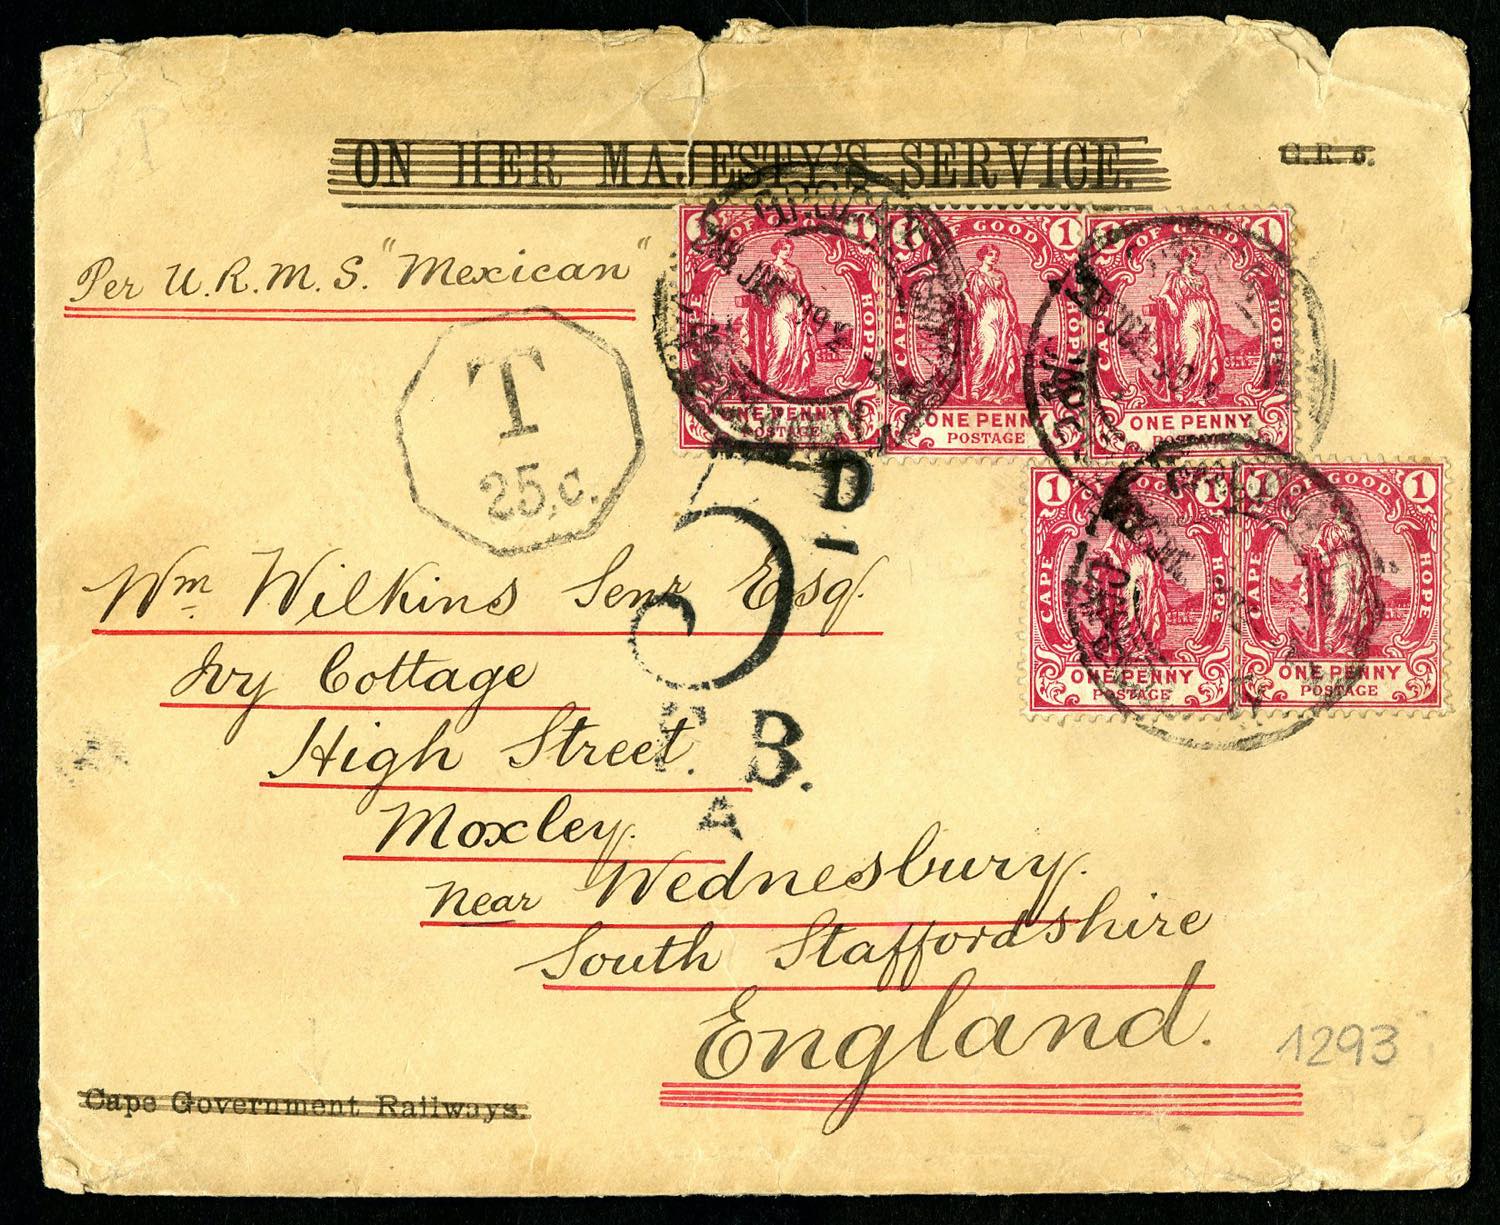 ON HER MAJESTY'S SERVICE.
Per U.R.M.S. "Mexican"
T
25.c.
1 1
CAPE OF GOOD HOPE
ONE PENNY
POSTAGE
1 1
CAPE OF GOOD HOPE
ONE PENNY
POSTAGE
1 1
CAPE OF GOOD HOPE
ONE PENNY
POSTAGE
1 1
CAPE OF GOOD HOPE
ONE PENNY
POSTAGE
1 1
CAPE OF GOOD HOPE
ONE PENNY
POSTAGE
5 D
T.B.
A
Wm Wilkins Senr Esq.
Ivy Cottage
High Street
Moxley.
near Wednesbury.
South Staffordshire
England.
1293
Cape Government Railways.